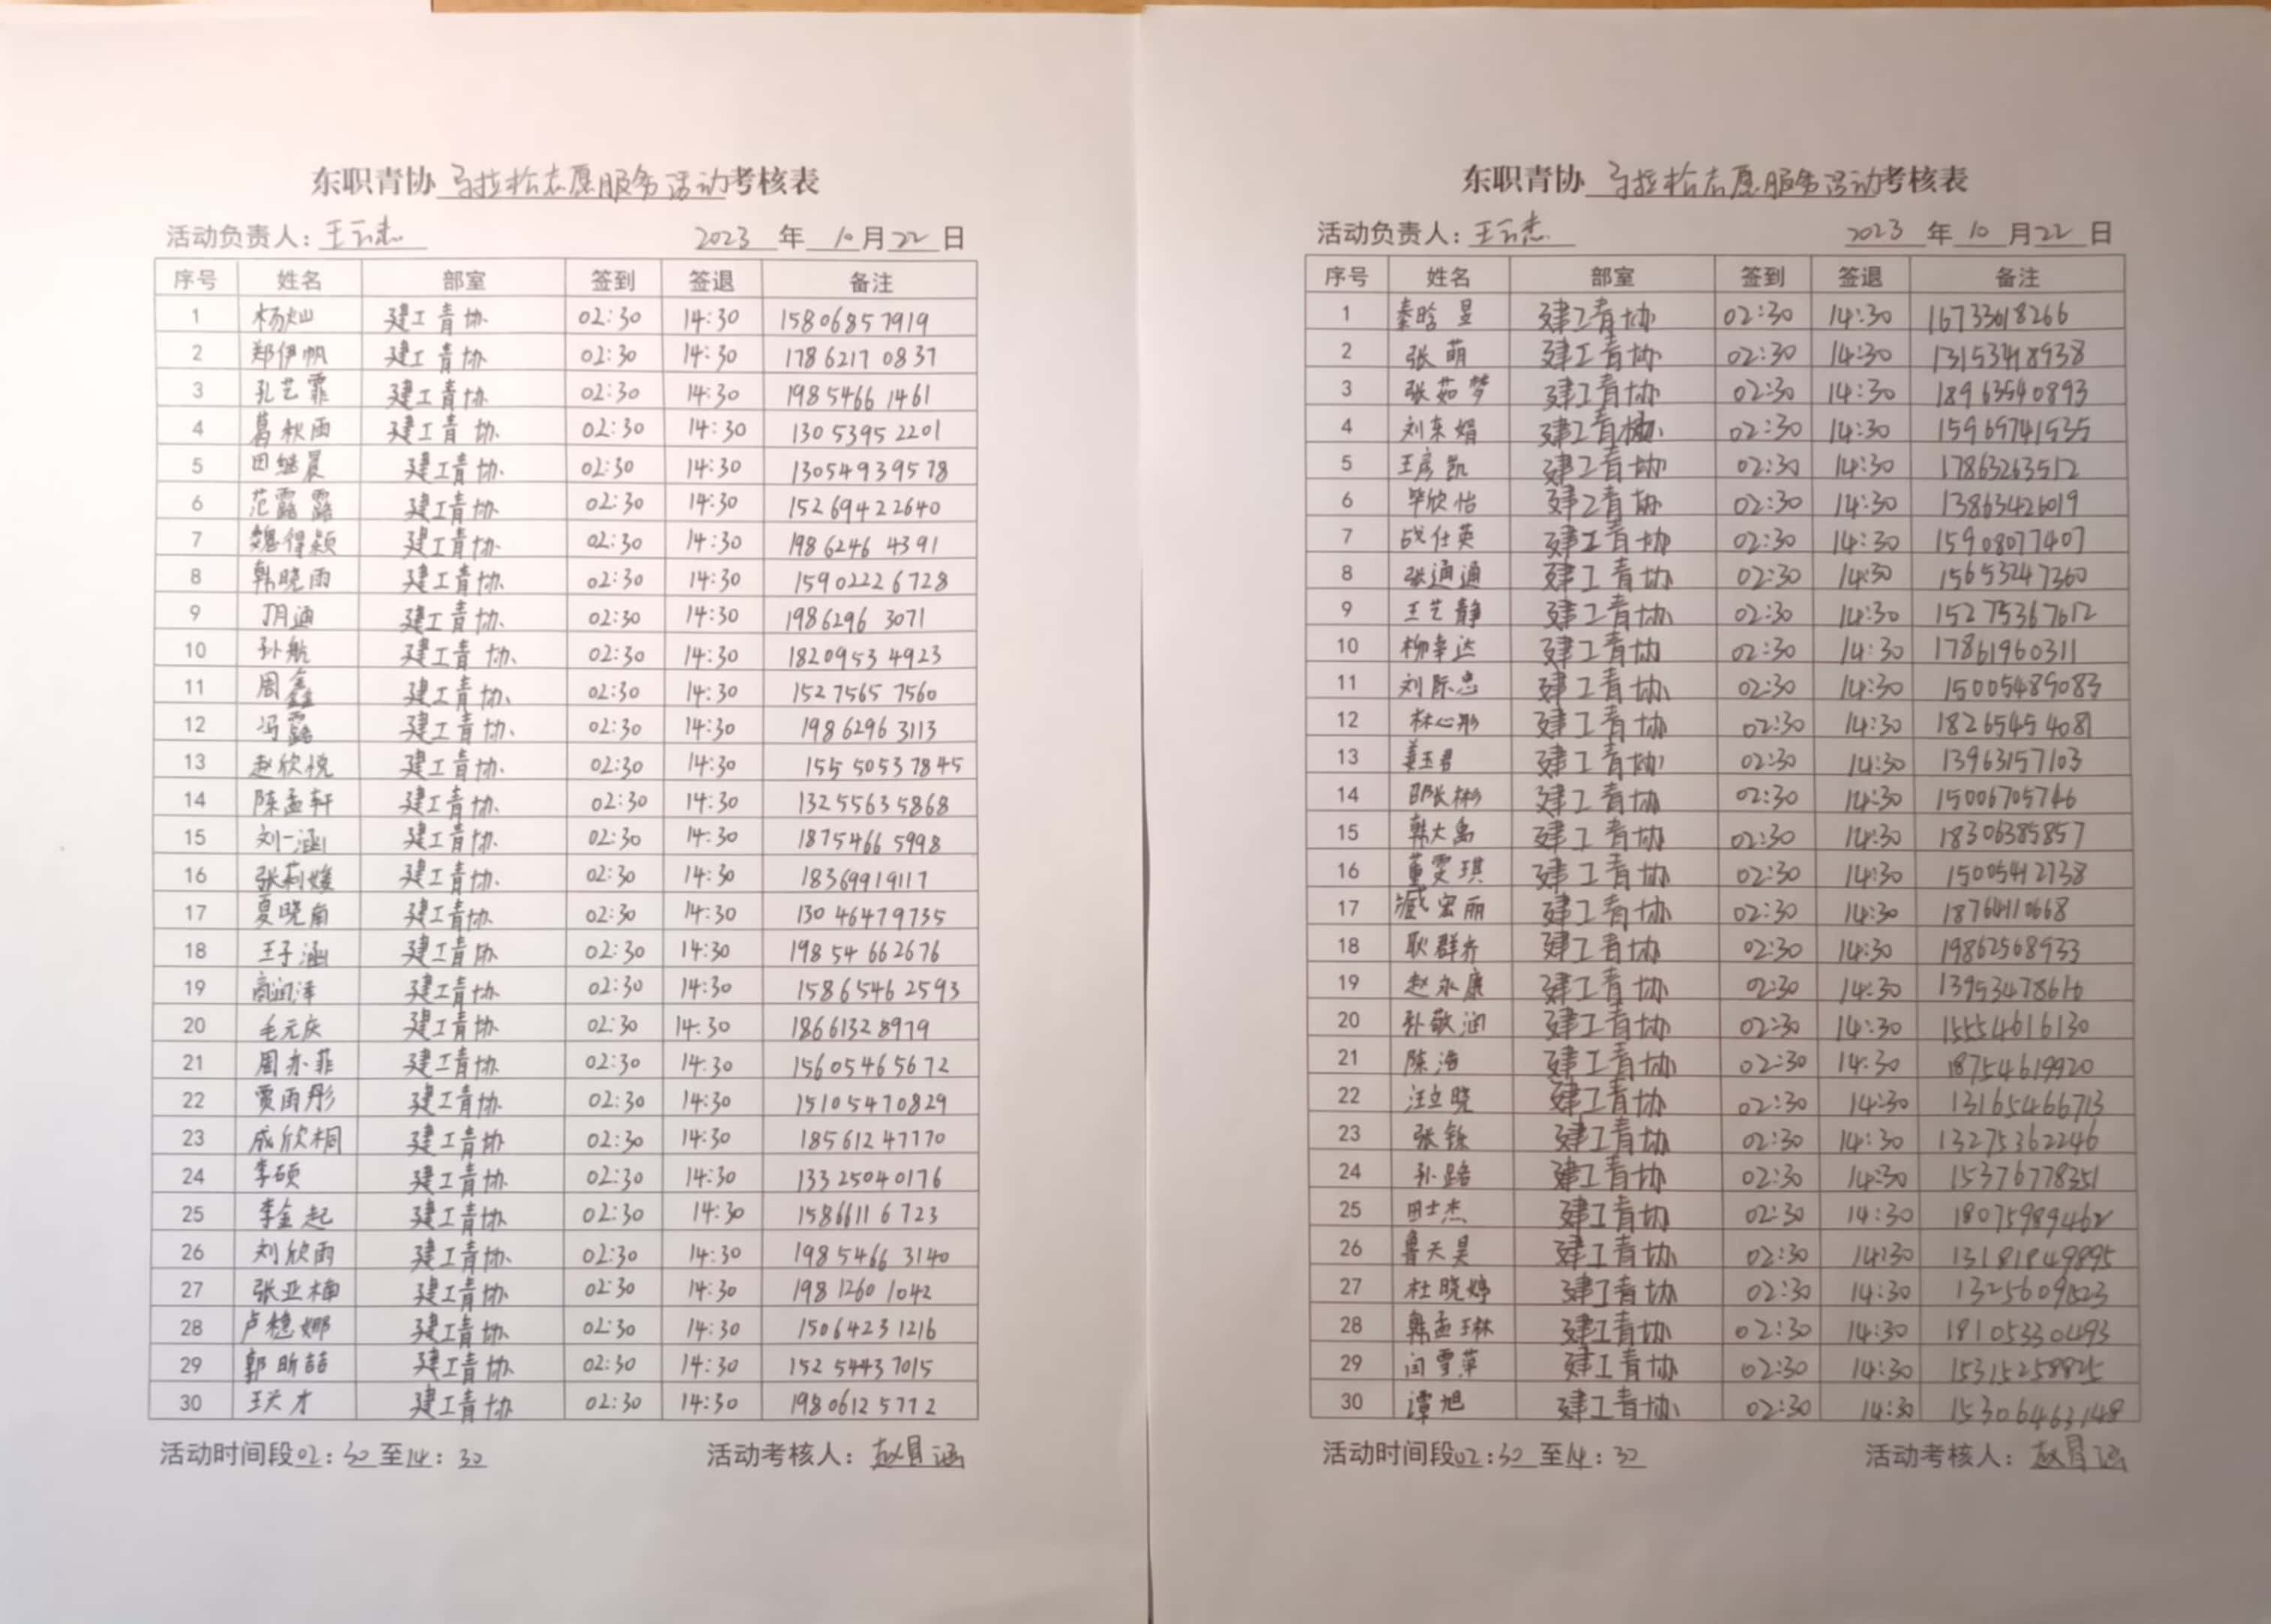 东职青协 马拉松志愿服务活动考核表
活动负责人：王云杰 2023 年 10 月 22 日
序号 姓名 部室 签到 签退 备注
1 杨灿 建工青协 02:30 14:30 15806857919
2 郑伊帆 建工青协 02:30 14:30 17862170837
3 孔艺霏 建工青协 02:30 14:30 19854661461
4 葛秋雨 建工青协 02:30 14:30 13053952201
5 田继晨 建工青协 02:30 14:30 13054939578
6 范露露 建工青协 02:30 14:30 15269422640
7 魏得颖 建工青协 02:30 14:30 19862464391
8 韩晓雨 建工青协 02:30 14:30 15902226728
9 建工青协 02:30 14:30 19862963071
10 孙航 建工青协 02:30 14:30 18209534923
11 周鑫 建工青协 02:30 14:30 15275657560
12 冯露 建工青协 02:30 14:30 19862963113
13 赵欣悦 建工青协 02:30 14:30 15550537845
14 陈孟轩 建工青协 02:30 14:30 13255635868
15 刘一涵 建工青协 02:30 14:30 18754665998
16 张莉媛 建工青协 02:30 14:30 18369919117
17 夏晓角 建工青协 02:30 14:30 13046479735
18 王子涵 建工青协 02:30 14:30 19854662676
19 商润泽 建工青协 02:30 14:30 15865462593
20 毛元庆 建工青协 02:30 14:30 18661328979
21 周亦菲 建工青协 02:30 14:30 15605465672
22 贾雨彤 建工青协 02:30 14:30 15105470829
23 成欣桐 建工青协 02:30 14:30 18561247170
24 李硕 建工青协 02:30 14:30 13325040176
25 李金起 建工青协 02:30 14:30 15866116723
26 刘欣雨 建工青协 02:30 14:30 19854663140
27 张亚楠 建工青协 02:30 14:30 19812601042
28 卢穗娜 建工青协 02:30 14:30 15064231216
29 郭昕喆 建工青协 02:30 14:30 15254437015
30 王天才 建工青协 02:30 14:30 19806125772
活动时间段02：30至14：30 活动考核人：
东职青协 马拉松志愿服务活动考核表
活动负责人：王云杰 2023 年 10 月 22 日
序号 姓名 部室 签到 签退 备注
1 秦晗昱 建工青协 02:30 14:30 16733618266
2 张萌 建工青协 02:30 14:30 13153418938
3 张茹梦 建工青协 02:30 14:30 18963540893
4 刘东娟 建工青协 02:30 14:30 15969741535
5 王彦凯 建工青协 02:30 14:30 17863263512
6 毕欣怡 建工青协 02:30 14:30 13863426019
7 战仕英 建工青协 02:30 14:30 15908077407
8 张通通 建工青协 02:30 14:30 15653247360
9 王艺静 建工青协 02:30 14:30 15275367612
10 柳幸达 建工青协 02:30 14:30 17861960311
11 刘际忠 建工青协 02:30 14:30 15005489083
12 林心彤 建工青协 02:30 14:30 18265454081
13 姜玉君 建工青协 02:30 14:30 13963157103
14 建工青协 02:30 14:30 15006705746
15 韩大禹 建工青协 02:30 14:30 18306385857
16 董雯琪 建工青协 02:30 14:30 15005412738
17 臧宏丽 建工青协 02:30 14:30 18764110668
18 耿群乔 建工青协 02:30 14:30 19862568933
19 赵永康 建工青协 02:30 14:30 13953478616
20 孙敬润 建工青协 02:30 14:30 15554616130
21 陈海 建工青协 02:30 14:30 18754619920
22 汪立晓 建工青协 02:30 14:30 13165466713
23 张铁 建工青协 02:30 14:30 13275362246
24 孙路 建工青协 02:30 14:30 15376778351
25 田士杰 建工青协 02:30 14:30 18075989462
26 鲁天昊 建工青协 02:30 14:30 13181849895
27 杜晓婷 建工青协 02:30 14:30
28 韩孟琳 建工青协 02:30 14:30 18105330493
29 闫雪苹 建工青协 02:30 14:30 15315258825
30 谭旭 建工青协 02:30 14:30
活动时间段02：30至14：30 活动考核人：